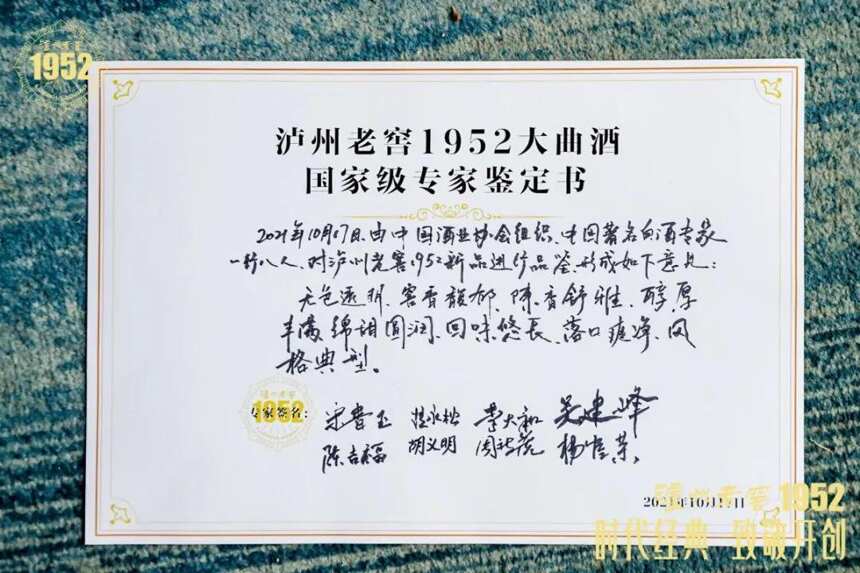 泸州老窖
1952
泸州老窖1952大曲酒
国家级专家鉴定书
2021年10月17日,由中国酒业协会组织、中国著名白酒专家
一行八人,对泸州老窖1952新品进行品鉴,形成如下意见:
无色透明、窖香馥郁、陈香舒雅、醇厚
丰满、绵甜圆润、回味悠长、落口爽净、风
格典型。
泸州老窖
1952
专家签名: 宋书玉 沈怡方 李大和 吴建峰
陈吉福 胡义明 杨官荣
2021年10月17日
泸州老窖1952
时代经典 致敬开创